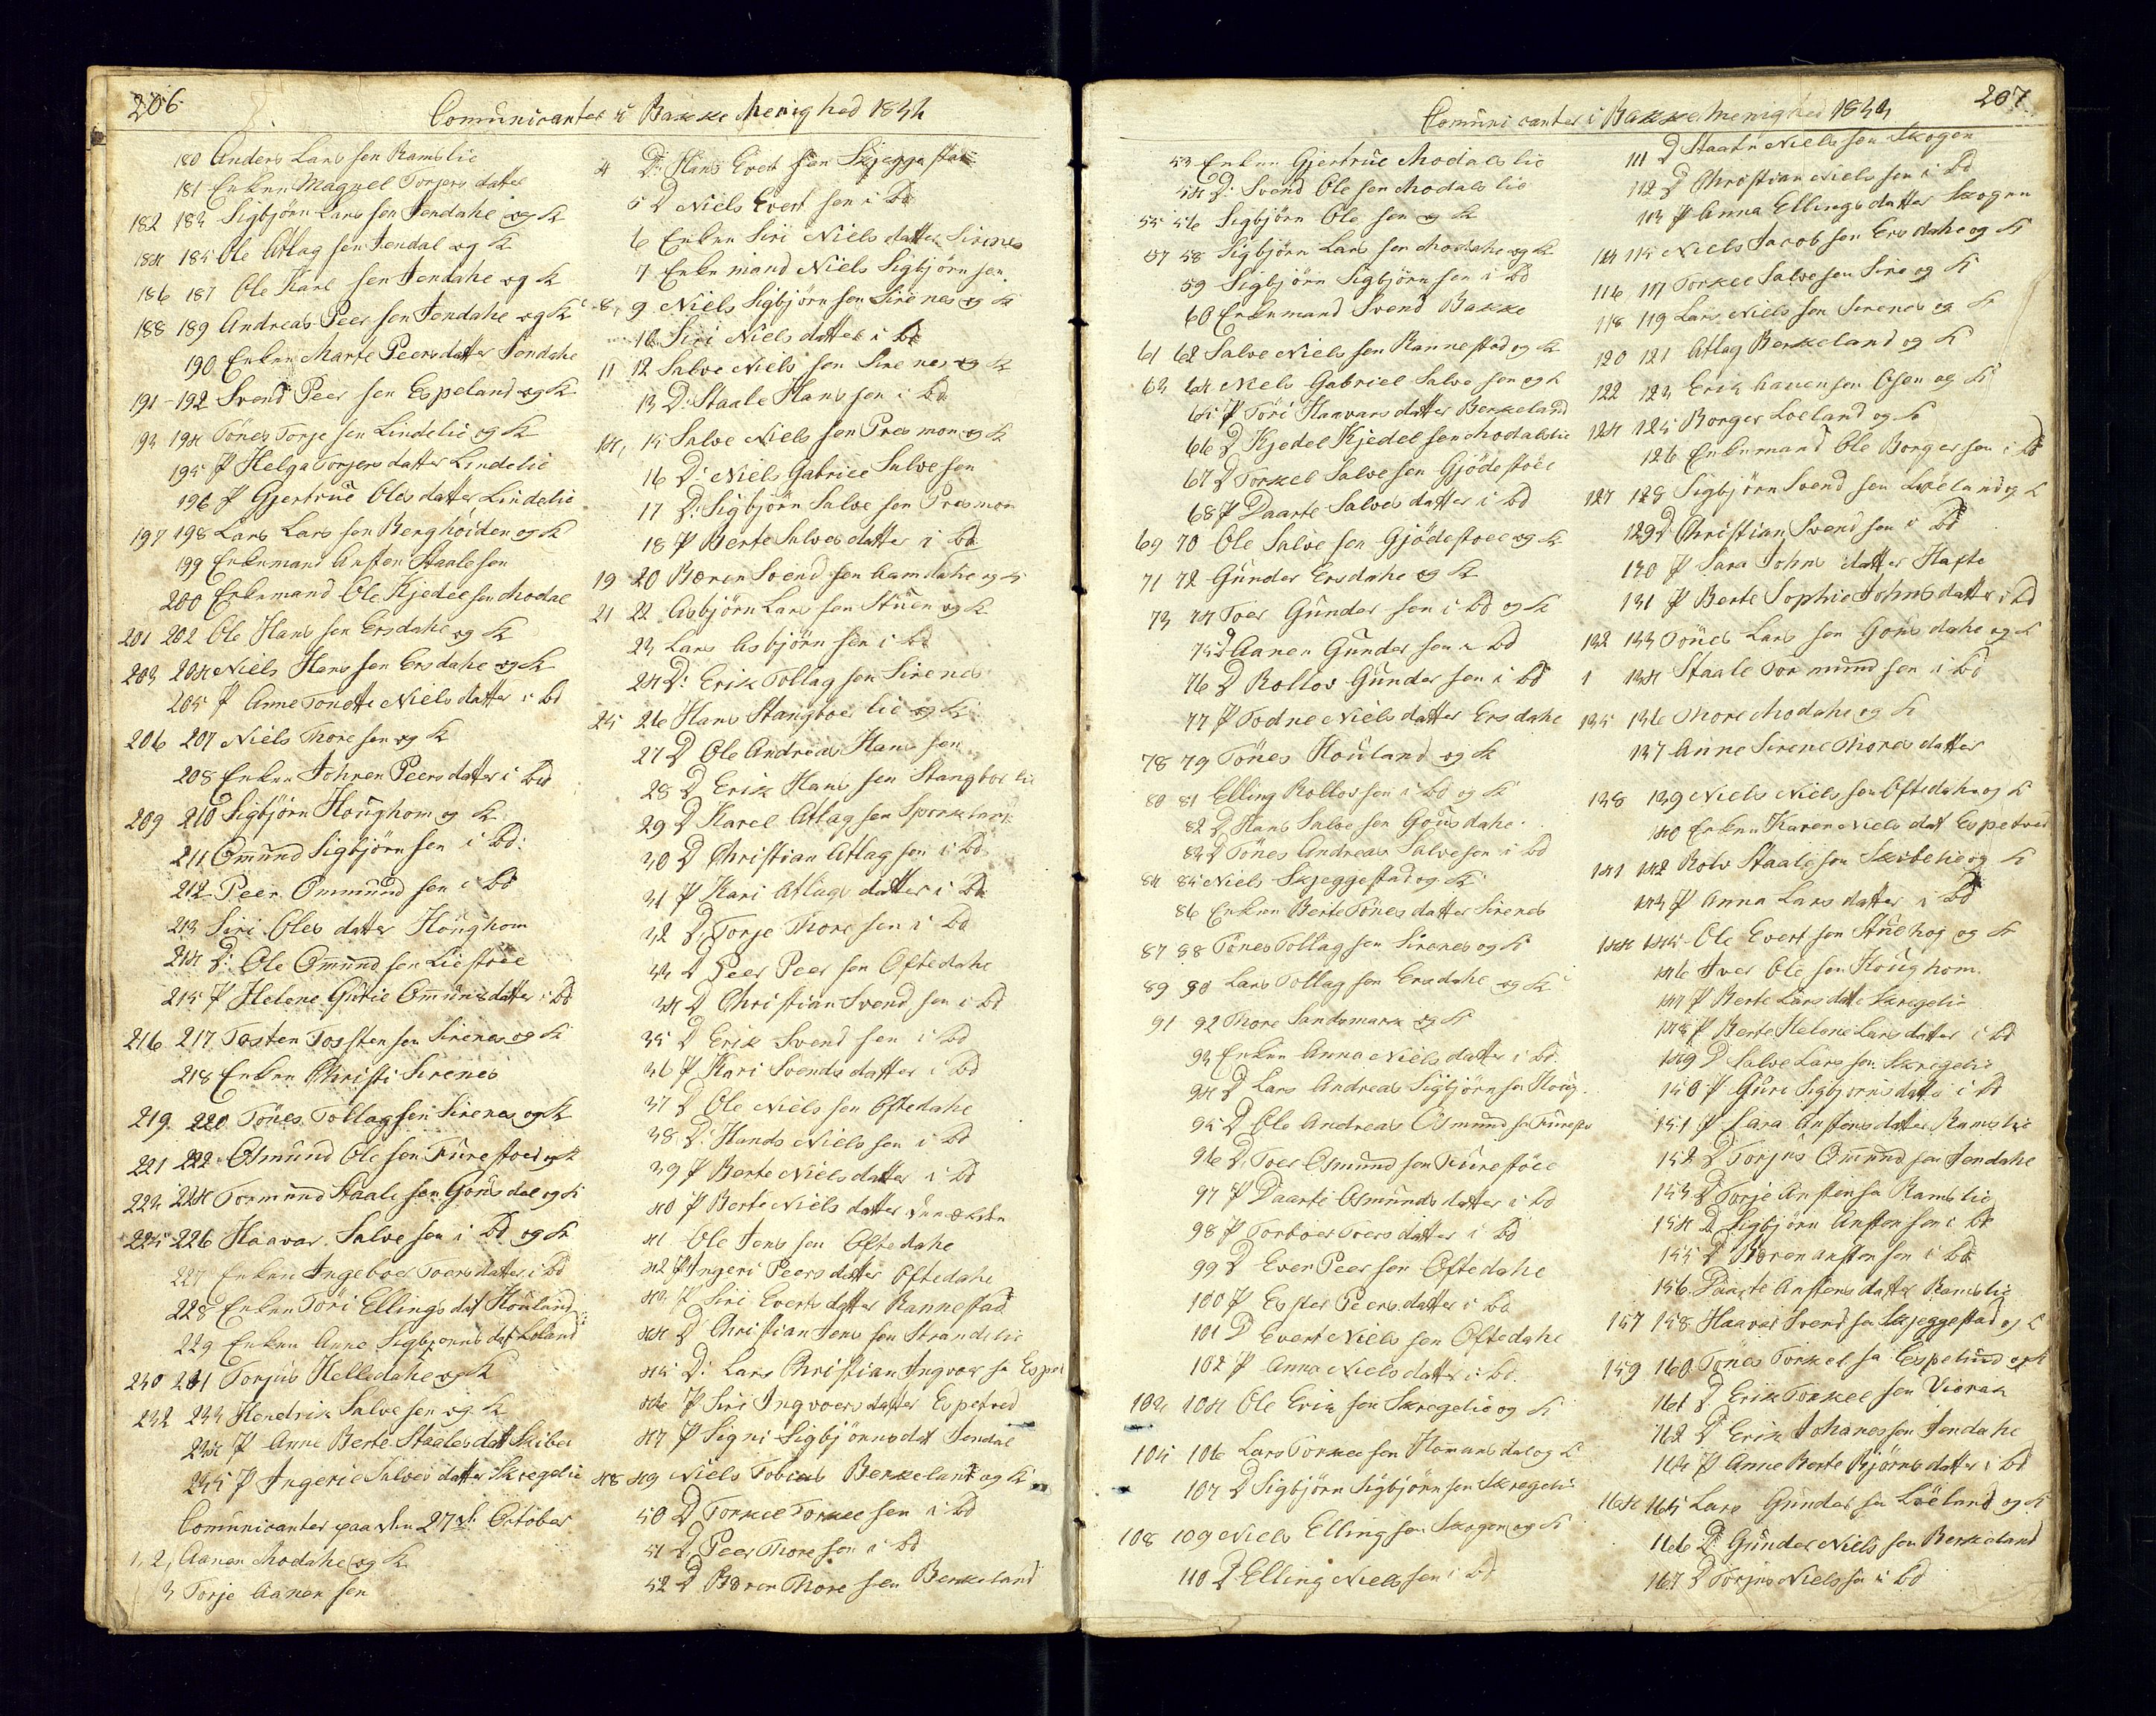 206
Comunicanter i Bakke Menighed 1834
180 Anders Lars sen Ramslie
181 Enken Magnel Torjers datter
182 183 Sigbjörn Lars sen Jendahe og K
184 185 Ole Atlag sen Jendal og K
186 187 Ole Karl sen Jendahe og K
188 189 Andreas Peer sen Jendahe og K
190 Enken Marte Peersdatter Jendahe
191-192 Svend Peer sen Espeland og K
193 194 Tönes Torje sen Lindelie og K
195 P Helga Torjersdatter Lindelie
196 P Gjertrue Olesdatter Lindelie
197 198 Lars Lars sen Berghöiden og K
199 Enkemand Ansten Staalesen
200 Enkemand Ole Kjedel sen Modal
201 202 Ole Hans sen Ersdahe og K
203 204 Niels Hans sen Ersdahe og K
205 P Anne Tonette Nielsdatter i bd
206 207 Niels Thore sen og K
208 Enken Johnen Peersdatter i bd
209 210 Sigbjörn Houghom og K
211 Omund Sigbjörn sen i bd:
212 Peer Ommund sen i bd
213 Siri Oles datter Houghom
214 D: Ole Omund sen Liestöel
215 P Helene Gurie Omunsdatter i bd
216 217 Tosten Tossten sen Sirenes og K
218 Enken Christi Sirenes
219 220 Tönes Tollagsen Sirenes og K
221 222 Osmund Ole sen Furestöel og K
223 224 Tormund Staale sen Gousdal og K
225 226 Haavar Salve sen i bd og K
227 Enken Ingebor Toersdatter i bd
228 Enken Töri Ellings dat Houland
229 Enken Anne Sigbjorns dat Loland
230 231 Torjus Helledahe og K
232 233 Hendrik Salve sen og K
234 P Anne Berte Staalesdat Skibei
235 P Ingerie Salves datter Skregelie
Comunicanter paa den 27de October
1, 2, Aanen Modahe og K
3 Torje Aanen sen
4 D: Hans Evert sen Skjeggestad
5 D Niels Evert sen i bd
6 Enken Siri Niels datter Sirenes
7 Enkemand Niels Sigbjörn sen
8, 9 Niels Sigbjörn sen Sirenes og K
10 Siri Niels datter i bd
11 12 Salve Niels sen Sirenes og K
13 D: Staale Hans sen i bd
14, 15 Salve Niels sen Presmon og K
16 D: Niels Gabriel Salvesen
17 D: Sigbjörn Salve sen Presmon
18 P Berte Salvesdatter i bd
19 20 Boren Svend sen Aamdahe og K
21 22 Asbjörn Lars sen Stuen og K
23 Lars Asbjörn sen i bd
24 D: Erik Tollag sen Sirenes
25 26 Hans Stangboerlie og K
27 D Ole Andreas Hans sen
28 D Erik Hans sen Stangboelie
29 D Karel Atlag sen
30 D Christian Atlag sen i bd
31 P Kari Atlags datter i bd
32 D, Torje Thore sen i bd
33 D Peer Peer sen Oftedahe
34 D Christian Svend sen i bd
35 D Erik Svend sen i bd
36 P Kari Svendsdatter i bd
37 D Ole Niels sen Oftedahe
38, D: Hands Niels sen i bd
39 P Berte Nielsdatter i bd
40 P Berte Niels datter
41 Ole Jens sen Oftedahe
42 P Ingeri Peersdatter Oftedahe
43 P Siri Everts datter Rannestad
44 D Christian Jens sen Strandelie
45 D: Lars Christian Ingvor se Espet
46 P Siri Ingvoersdatter Espetved
47 P Signi Sigbjörnsdat Jendal
48 49 Niels Tobias Berkeland og K
50 D Torkel Torkelsen i bd
51 D, Peer Thore sen i bd
52 D Boren Thore sen Berkeland
207
Comunicanter i Bakke Menighed 1834
53 Enken Gjertrue Modalslie
54 D: Svend Ole sen Modalslie
55 56 Sigbjörn Ole sen og K
57 58 Sigbjörn Lars sen Modahe og K
59 Sigbjörn Sigbjörn sen i bd
60 Enkemand Svend Bakke
61 62 Salve Niels sen Rannestad og K
63 64 Niels Gabriel Salve sen og K
65 P Töri Haavarsdatter Berkeland
66 D Kjedel Kjedel sen Modalslie
67 D Torkel Salvesen Gjödestöel
68 P Daarte Salvesdatter i bd
69 70 Ole Salve sen Gjödestöel og K
71 72 Gunder Ersdahe og K
73 74 Toer Gunder sen i bd og K
75 D Aanen Gunder sen i bd
76 D Rollov Gunder sen i bd
77 P Todne Nielsdatter Ersdahe
78 79 Tönes Houland og K
80 81 Elling Rollovsen i bd og K
82 D Hans Salve sen Gousdahe
83 D Tönes Andreas Salvesen i bd
84 85 Niels Skjeggestad og K
86 Enken Berte Tönesdatter Sirenes
87 88 Tönes Tollag sen Sirenes og K
89 90 Lars Tollag sen Ersdahe og K
91 92 Thore Sandsmark og K
93 Enken Anna Niels datter i bd.
94 D Lars Andreas Sigbjörn se Houg
95 D Ole Andreas Osmund se Furestö
96 D, Toer Osmund sen Furestöel
97 P Daarte Osmundsdatter i bd
98 P Torboer Toersdatter i bd
99 D Even Peer sen Oftedahe
100 P Ester Peersdatter i bd
101 D Evert Niels sen Oftedahe
102 P Anna Nielsdatter i bd.
103 104 Ole Erik sen Skregelie og K
105 106 Lars Torkel sen Homansdal og K
107 D Sigbjörn Sigbjörn sen Skregelie
108 109 Niels Elling sen Skogen og K
110 D Elling Nielssen i bd
111 D Staale Niels sen Skogen
112 D Christian Niels sen i bd
113 P Anna Ellingsdatter Skogen
114 115 Niels Jacob sen Ersdahe og K
116 117 Torkel Salvesen Sire og K
118 119 Lars Niels sen Sirenes og K
120 121 Atlag Berkeland og K
122 123 Erik Aanensen Osen og K
124 125 Borger Loeland og K
126 Enkemand Ole Borgersen i bd
127 128 Sigbjörn Svend sen Loeland og K
129 D Christian Svend sen i bd
130 P Sara Johns datter Hafte
131 P Berte Sophie Johnsdatter i bd
132 133 Tönes Lars sen Gousdahe og K
1 134 Staale Tormund sen i bd
135 136 Thore Modahe og K
137 Anne Sirene Thoresdatter
138 139 Niels Niels sen Oftedahe og K
140 Enken Karen Niels dat Espetved
141 142 Rolv Staale sen Skibelie og K
143 P Anna Lars datter i bd
144 145 Ole Evert sen Stuehog og K
146 Iver Ole sen Houghom.
147 P Berte Larsdat Skregelie
148 P Berte Helene Larsdatter i bd
149 D Salve Lars sen Skregelie
150 P Guri Sigbjornsdatte i bd
151 P Sara Anstensdatter Ramslie
152 D Torjus Omund sen Jendahe
153 D Torje Ansten se Ramslie
154 D Sigbjörn Ansten sen i bd
155 D Boren Ansten sen i bd
156 Daarte Anstensdatter Ramslie
157 158 Haavar Svend se Skjeggestad og K
159 160 Tönes Torkel se Espelund og K
161 D Erik Torkel sen Vierak
162 D Erik Johanessen Jendahe
163 P Anne Berte Björnsdatter i bd
164 165 Lars Gunder se Löeland og K
166 D Gunder Niels sen Berkeland
167 D Torjus Niels se i bd